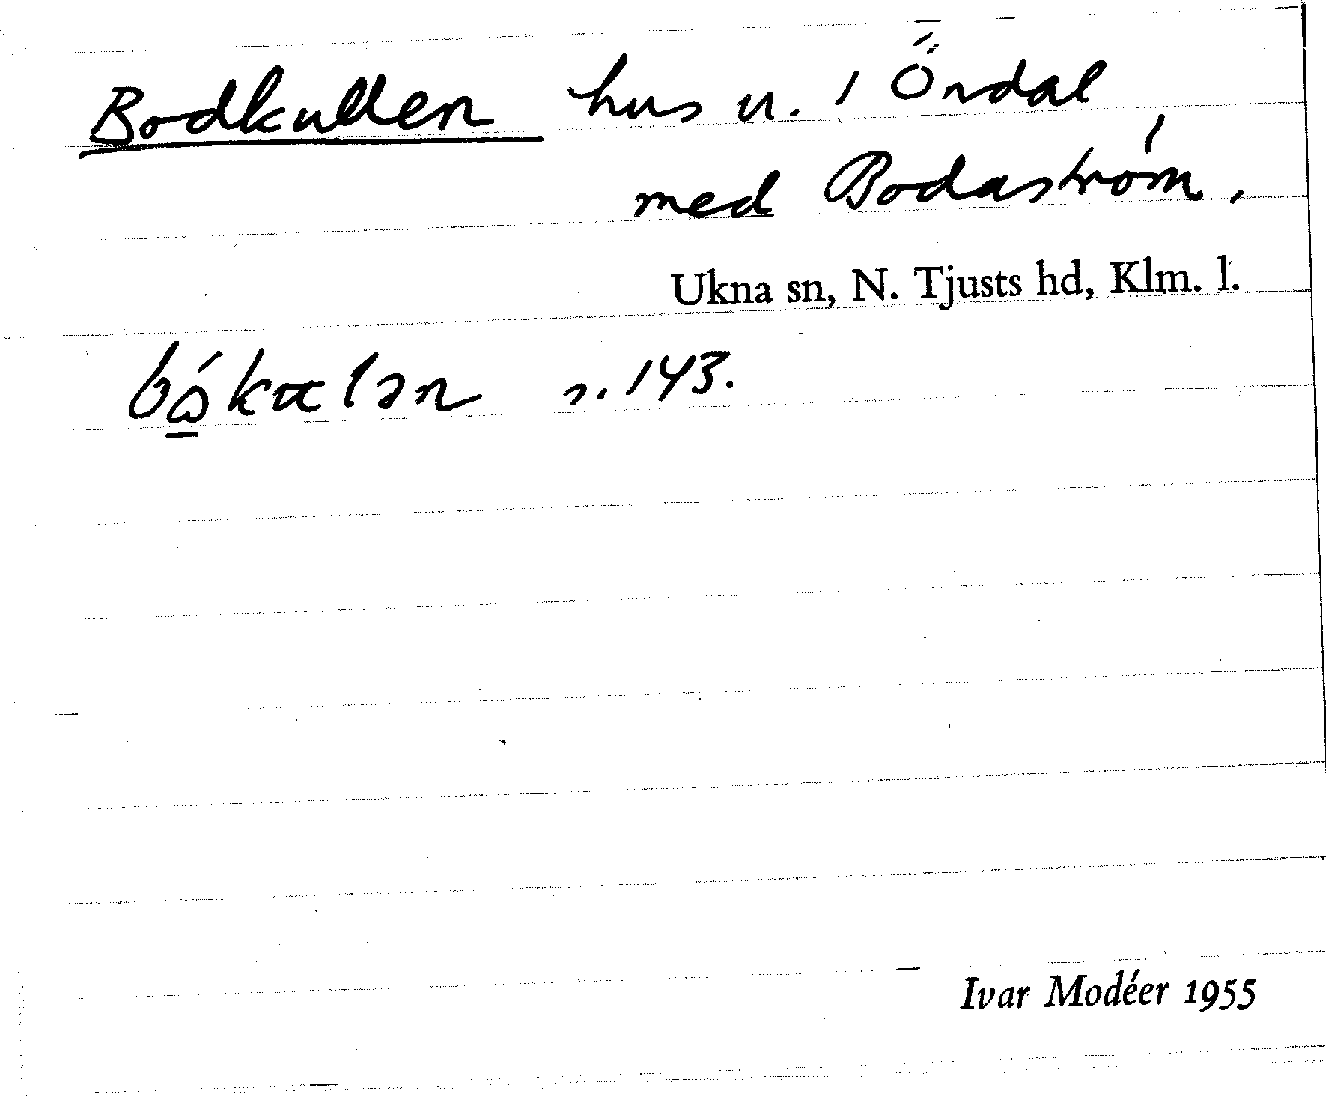 Bodkullen hus u. / Öndal
med Bodaström.
Ukna sn, N. Tjusts hd, Klm. l.
s. 143.
Ivar Modéer 1955